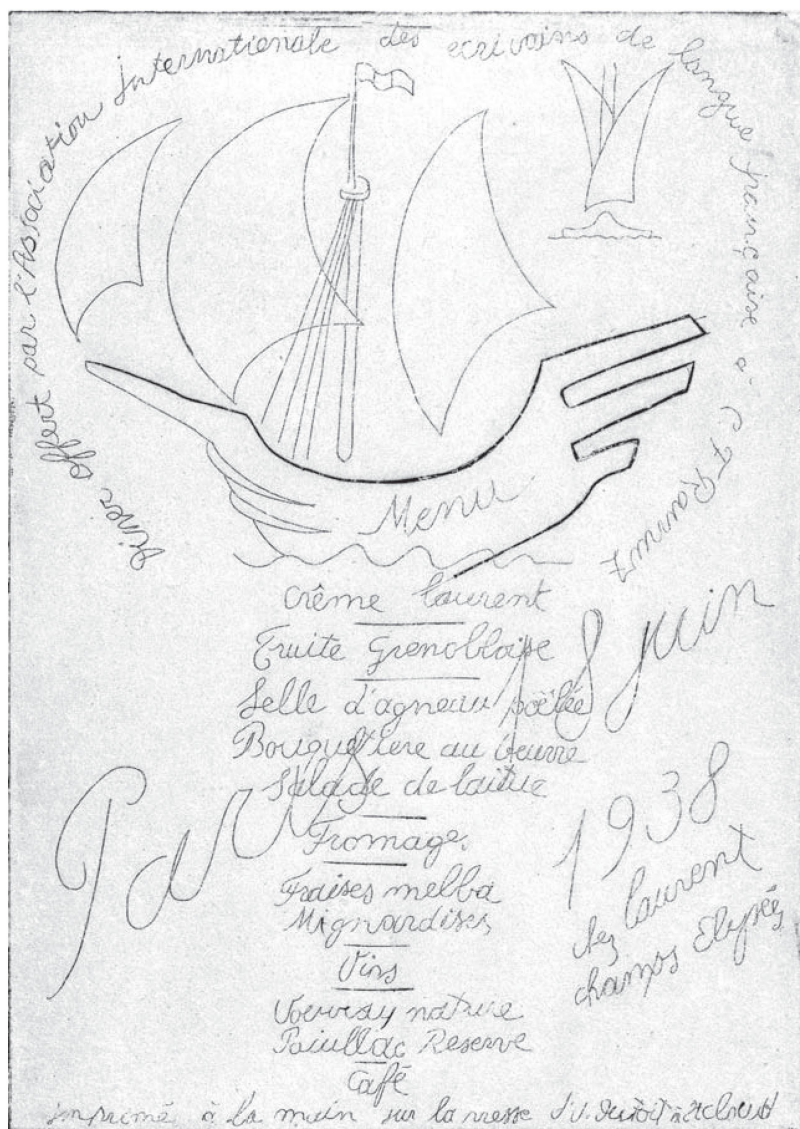 Diner offert par l'Association internationale des ecrivains de langue française à C F Ramuz
Menu
Crême laurent
Truite Grenobloise
Selle d'agneau poêlée
Bouquetiere au beurre
Salade de laitue
Fromage
Fraises melba
Mignardises
Vins
Vouvray nature
Pauillac Reserve
Café
Paris
18 juin
1938
chez laurent
champs Elysées
imprimé à la main sur la presse d'